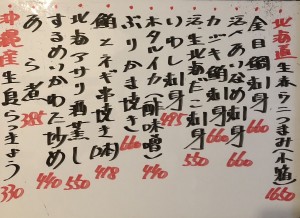 北海道生春うにつまみ(小箱) 1650
金目鯛刺身 660
活〆あいなめ刺身 660
カツオ刺身 660
活〆生北海だこ刺身 550
いわし刺身 495
ホタルイカ(酢味噌) 440
ぶりかま焼き 660
鮪とネギ串焼き(1本) 418
北海アサリ酒蒸し 550
するめいかわた炒め 440
あら煮 385
沖縄産生島らっきょう 330